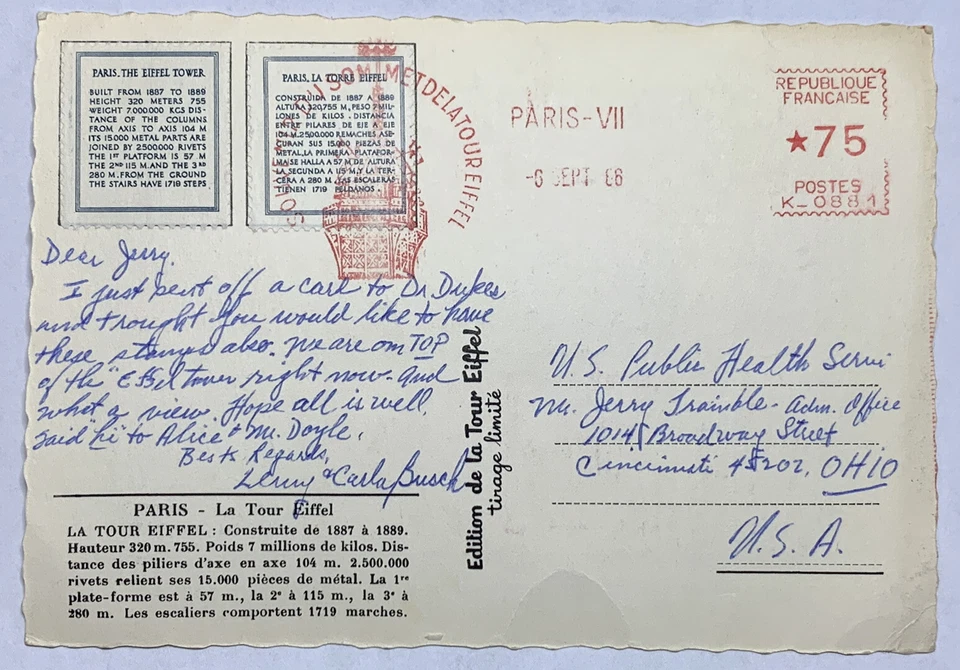 PARIS. THE EIFFEL TOWER
BUILT FROM 1887 TO 1889
HEIGHT 320 METERS 755
WEIGHT 7.000.000 KGS DIS-
TANCE OF THE COLUMNS
FROM AXIS TO AXIS 104 M
ITS 15.000 METAL PARTS ARE
JOINED BY 2500000 RIVETS
THE 1ST PLATFORM IS 57 M
THE 2ND 115 M. AND THE 3RD
280 M. FROM THE GROUND
THE STAIRS HAVE 1719 STEPS
PARIS, LA TORRE EIFFEL
CONSTRUIDA DE 1887 A 1889
ALTURA 320,755 M, PESO 7 MIL-
LONES DE KILOS. DISTANCIA
ENTRE PILARES DE EJE A EJE
104 M. 2.500.000 REMACHES ASE-
GURAN SUS 15.000 PIEZAS DE
METAL, LA PRIMERA PLATAFOR-
MA SE HALLA A 57 M DE ALTURA
LA SEGUNDA A 115 M, Y LA TER-
CERA A 280 M. LAS ESCALERAS
TIENEN 1719 PELDAÑOS.
SOMMET DE LA TOUR EIFFEL
PARIS-VII
-6 SEPT 66
REPUBLIQUE
FRANCAISE
★75
POSTES
K_0881
Dear Jerry.
I just sent off a card to Dr. Dukes
and thought you would like to have
these stamps also. We are on TOP
of the "Eiffel tower right now. And
what a view. Hope all is well.
Said "hi" to Alice & Mr. Doyle.
Bests Regards,
Lenny & Carla Busch
Edition de la Tour Eiffel
tirage limité
U.S. Public Health Servi
Mr. Jerry Tramble - Adm. Office
1014 Broadway Street
Cincinnati 45202, OHIO
U.S.A.
PARIS - La Tour Eiffel
LA TOUR EIFFEL : Construite de 1887 à 1889.
Hauteur 320 m. 755. Poids 7 millions de kilos. Dis-
tance des piliers d'axe en axe 104 m. 2.500.000
rivets relient ses 15.000 pièces de métal. La 1re
plate-forme est à 57 m., la 2e à 115 m., la 3e à
280 m. Les escaliers comportent 1719 marches.